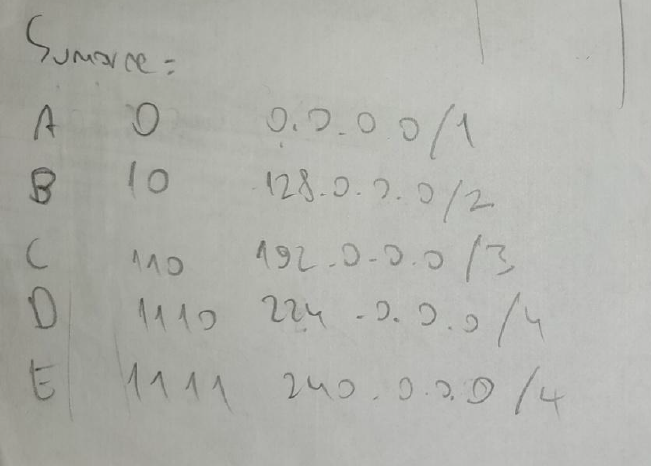 Sumarce =
A 0 0.0.0 0/1
B 10 128.0.0.0/2
C 110 192.0.0.0/3
D 1110 224.0.0.0/4
E 1111 240.0.0.0/4